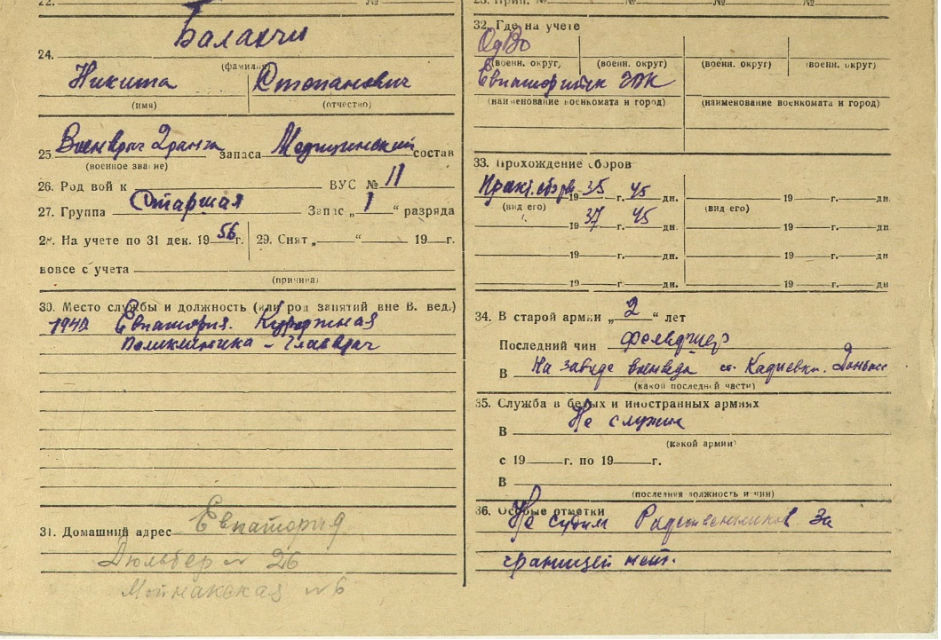 22. №
Баланчи
24.
(фамилия)
Никита Степанович
(имя) (отчество)
25. Военврач 2 ранга запаса Медицинский состав
(военное звание)
26. Род войск ВУС № 11
27. Группа Старшая Запас „ 1 “ разряда
28. На учете по 31 дек. 19 56 г. 29. Снят „ “ 19 г.
вовсе с учета
(причина)
30. Место службы и должность (или род занятий вне В. вед.)
Евпатория. Курортная
поликлиника – главврач
31. Домашний адрес Евпатория
Дюльбер № 26
Мойнакская № 6
№ №
32. Где на учете
ОдВО
(военн. округ, (военн. округ) (военн. округ) (военн. округ)
Евпаторийск
(наименование военкомата и город) (наименование военкомата и город)
33. Прохождение сборов
19 35 г. 45 дн. 19 г. дн.
(вид его) (вид его)
19 37 г. 45 дн. 19 г. дн.
19 г. дн. 19 г. дн.
19 г. дн. 19 г. дн.
34. В старой армии „ 2 “ лет
Последний чин фельдшер
В На заводе ст. Кадиевка. Донбас
(какой последней части)
35. Служба в белых и иностранных армиях
В Не служил
(какой армии)
с 19 г. по 19 г.
В
(последняя должность и чин)
36. Особые отметки
Не судим Родственников за
границей нет.